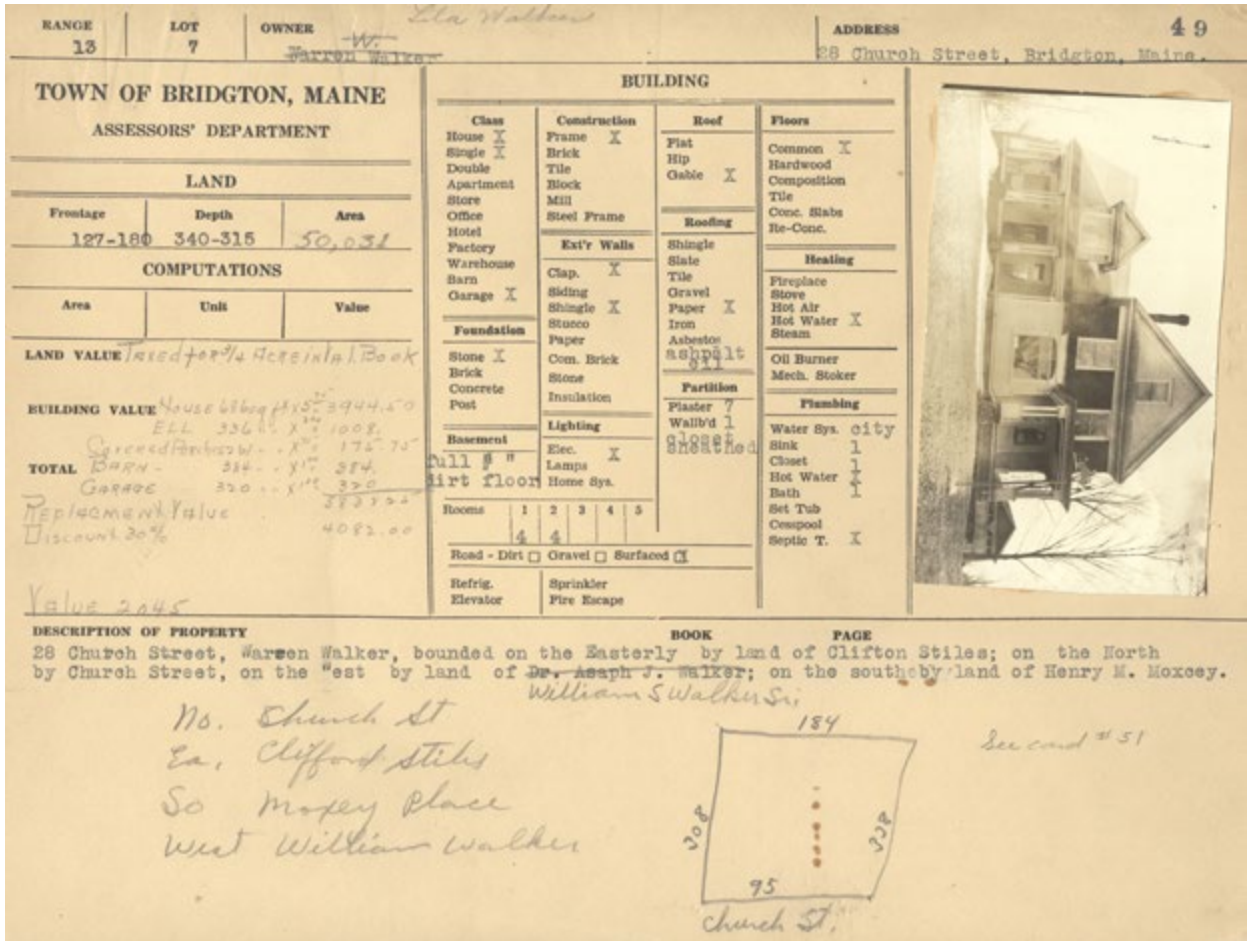 Lla Walker
49
RANGE LOT OWNER ADDRESS
13 7 W. Warren Walker 28 Church Street, Bridgton, Maine.
TOWN OF BRIDGTON, MAINE
ASSESSORS' DEPARTMENT
LAND
Frontage Depth Area
127-180 340-315 50,031
COMPUTATIONS
Area Unit Value
LAND VALUE Taxed for 3/4 Acre in Val. Book
BUILDING VALUE House 686 sq ft x 5.75 3944.50
ELL 336 " x 3.00 1008.
175.75
TOTAL BARN - 384 - x 1.00 384.
GARAGE 320 " x 1.00 320
Replacment Value
Discount 30% 4082.00
Value 2045
BUILDING
Class
House X
Single X
Double
Apartment
Store
Office
Hotel
Factory
Warehouse
Barn
Garage X
Foundation
Stone X
Brick
Concrete
Post
Basement
full "
dirt floor
Construction
Frame X
Brick
Tile
Block
Mill
Steel Frame
Ext'r Walls
Clap. X
Siding
Shingle X
Stucco
Paper
Com. Brick
Stone
Insulation
Lighting
Elec. X
Lamps
Home Sys.
Rooms 1 2 3 4 5
4 4
Road - Dirt Gravel Surfaced X
Refrig. Sprinkler
Elevator Fire Escape
Roof
Flat
Hip
Gable X
Roofing
Shingle
Slate
Tile
Gravel
Paper X
Iron
Asbestos
ashpalt
Partition
Plaster 7
Wallb'd 1
closet
sheathed
Floors
Common X
Hardwood
Composition
Tile
Conc. Slabs
Re-Conc.
Heating
Fireplace
Stove
Hot Air
Hot Water X
Steam
Oil Burner
Mech. Stoker
Plumbing
Water Sys. city
Sink 1
Closet 1
Hot Water 1
Bath 1
Set Tub
Cesspool
Septic T. X
DESCRIPTION OF PROPERTY BOOK PAGE
28 Church Street, Warren Walker, bounded on the Easterly by land of Clifton Stiles; on the North
by Church Street, on the "est by land of Dr. Asaph J. Walker; on the southeby land of Henry M. Moxcey.
William S Walker Sr.
No. Church St
Ea. Clifford Stiles
So Moxey Place
West William Walker
184
308
338
95
Church St.
See card #51